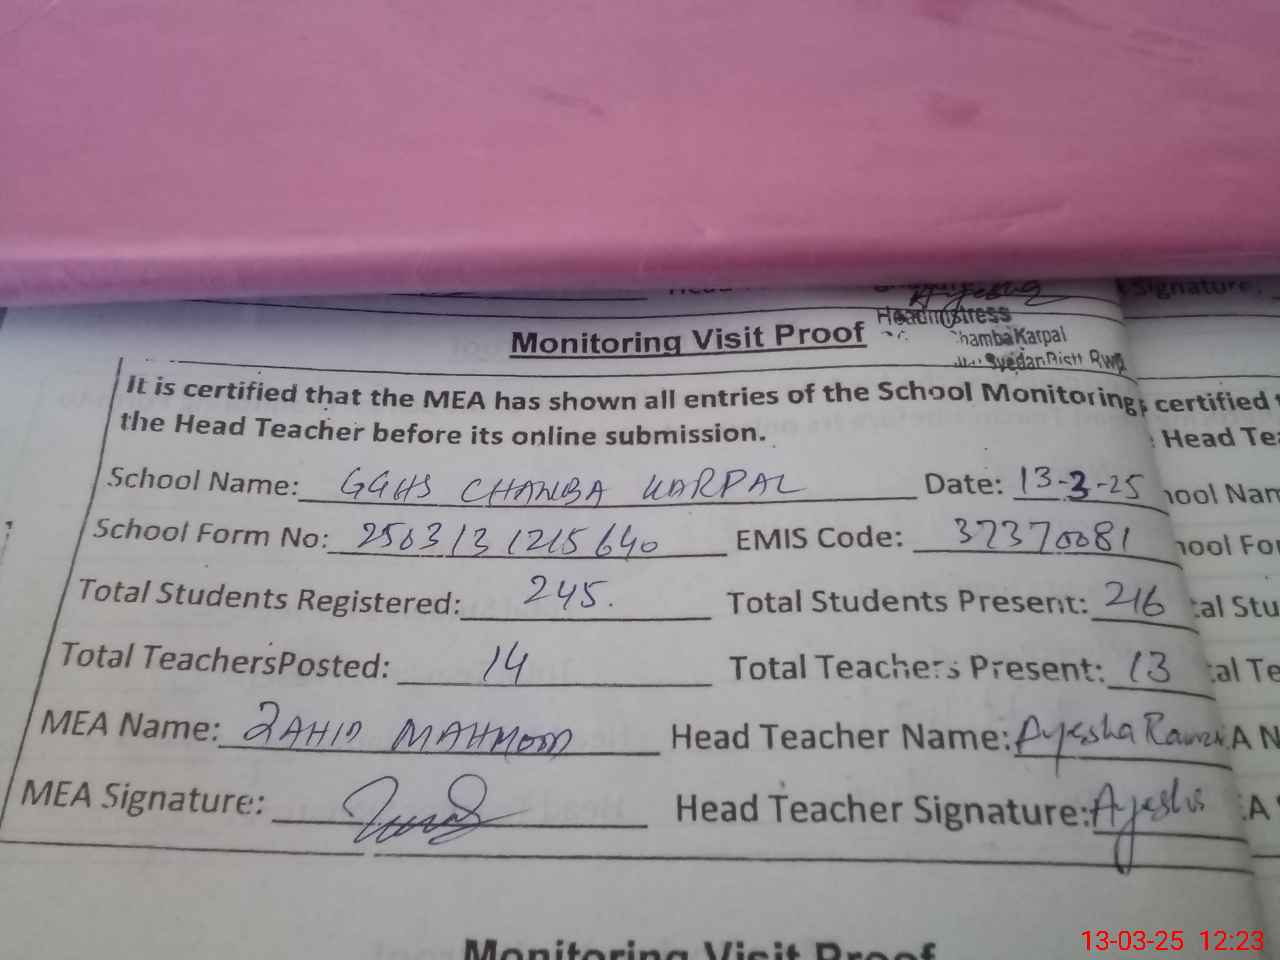 Ayesha
Headmistress
Chamba Karpal
Syedan Distt Rwp
Signature:
Monitoring Visit Proof
It is certified that the MEA has shown all entries of the School Monitoring
certified
the Head Teacher before its online submission.
Head Tea
School Name: GGHS CHAMBA KARPAL Date: 13-3-25
hool Nam
School Form No: 250313 1215640 EMIS Code: 37370081
hool Fo
Total Students Registered: 245. Total Students Present: 216
tal Stu
Total TeachersPosted: 14 Total Teachers Present: 13
tal Te
MEA Name: ZAHID MAHMOOD Head Teacher Name: Ayesha
A N
MEA Signature: Head Teacher Signature: Ayesha
EA
Monitoring Visit Proof
13-03-25 12:23